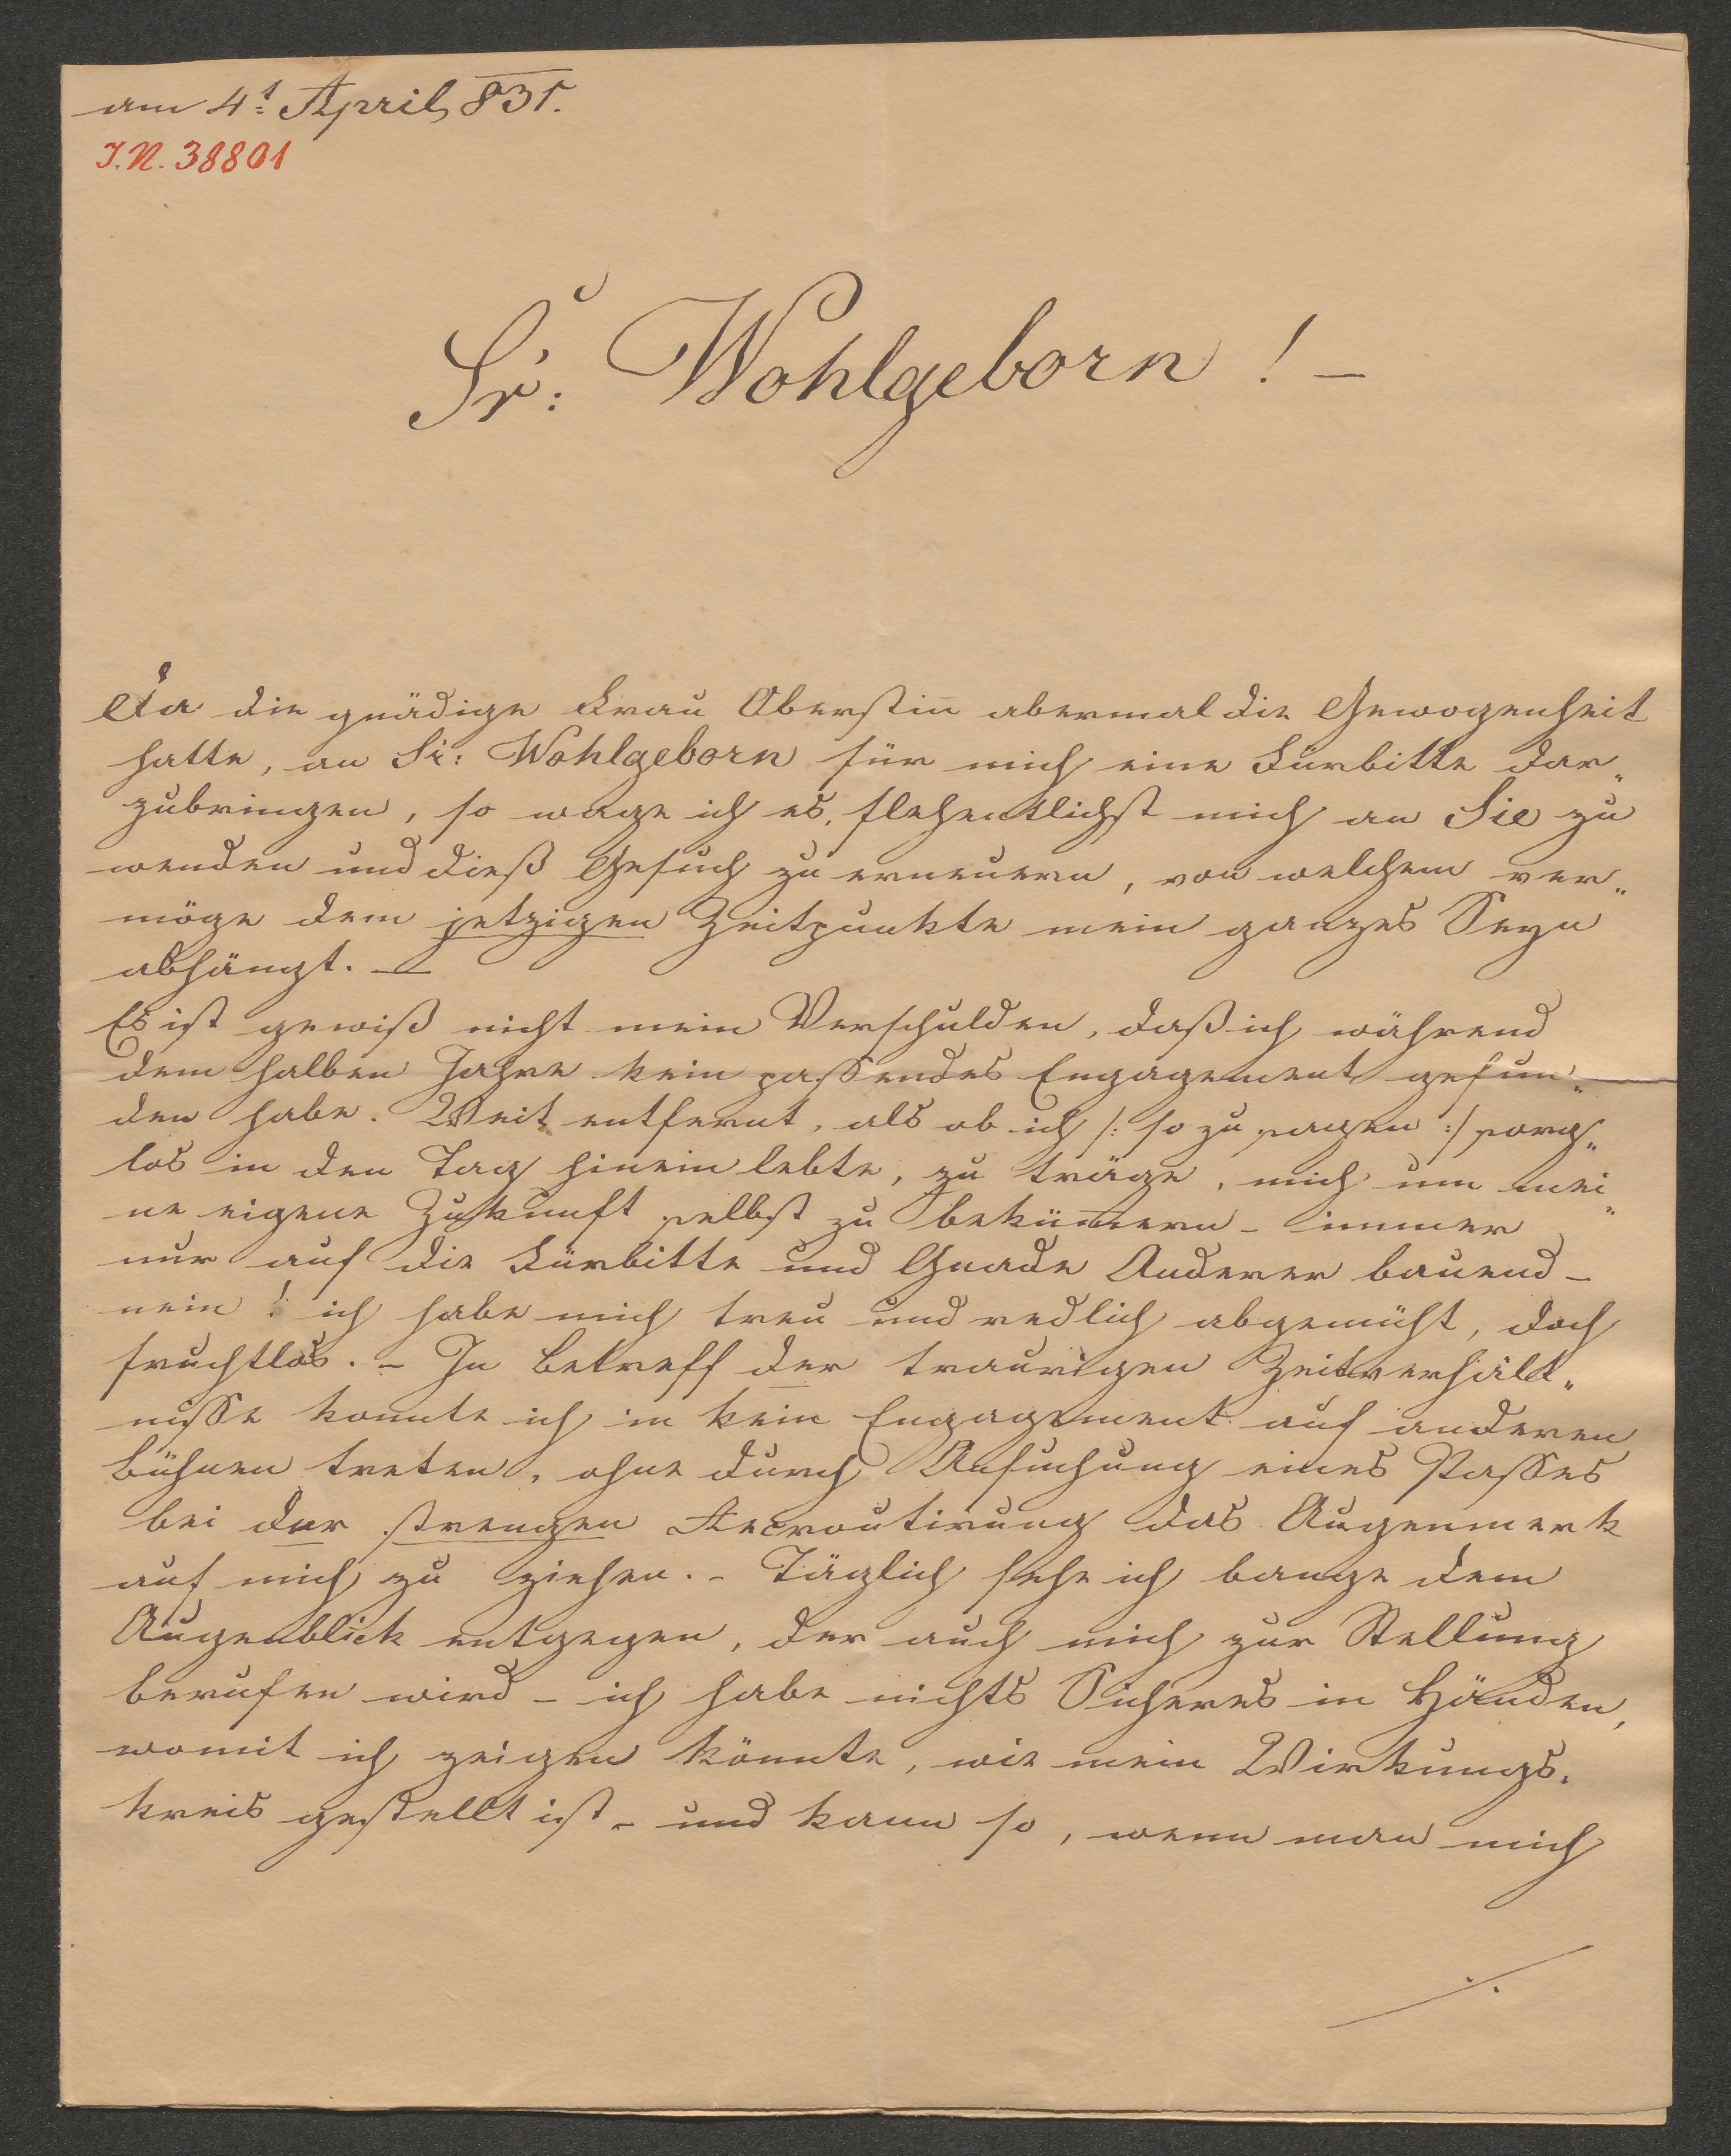 am 4t April 831.
I.N. 38801
Sr: Wohlgeborn! –
Da die gnädige Frau Oberstin̄ abermal die Gewogenheit
hatte, an Sr: Wohlgeborn für mich eine Fürbitte dar„
zubringen, so wage ich es, flehentlichst mich an Sie zu
wenden und dieß Gesuch zu erneuern, von welchem ver„
möge dem jetzigen Zeitpunkte mein ganzes Seyn
abhängt. –
Es ist gewiß nicht mein Verschulden, daß ich während
dem halben Jahre kein passendes Engagement gefun„
den habe. Weit entfernt, als ob ich /: so zu sagen :/ sorg„
los in den Tag hinein lebte, zu träge, mich um mei„
ne eigene Zukunft selbst zu beküm̄ern – immer
nur auf die Fürbitte und Gnade Anderer bauend –
nein! ich habe mich treu und redlich abgemüht, doch
fruchtlos. – In Betreff der traurigen Zeitverhält„
nisse konnte ich in kein Engagement auf anderen
Bühnen treten, ohne durch Ansuchung eines Passes
bei der strengen Recroutirung das Augenmerk
auf mich zu ziehen. – Täglich sehe ich bange dem
Augenblick entgegen, der auch mich zur Stellung
berufen wird – ich habe nichts Sicheres in Händen,
womit ich zeigen könnte, wie mein Wirkungs„
kreis gestellt ist – und kann so, wenn man mich
./.